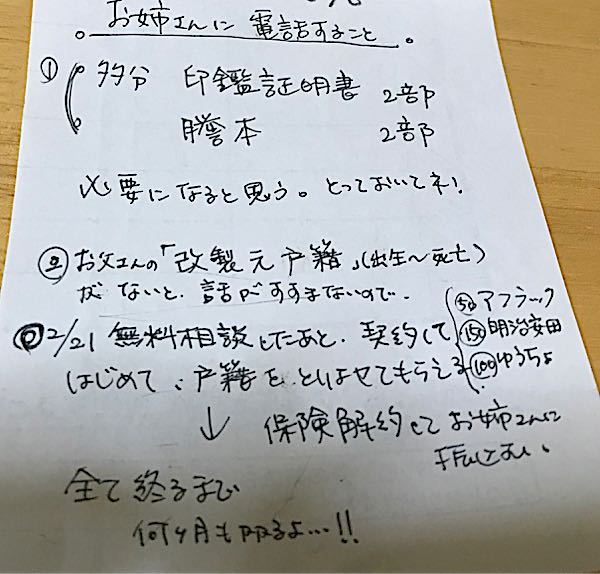 お姉さんに電話すること
① 多分 印鑑証明書 2部
謄本 2部
必要になると思う。とっておいてネ!
② お父さんの「改製元戸籍」(出生〜死亡)
がないと、話がすすまないので、
2/21 無料相談したあと、契約して
はじめて、戸籍をとりよせてもらえる
50 アフラック
150 明治安田
100 ゆうちょ
↓ 保険解約してお姉さんに
振込み、
全て終るまで
何ヶ月もかかるよ…!!